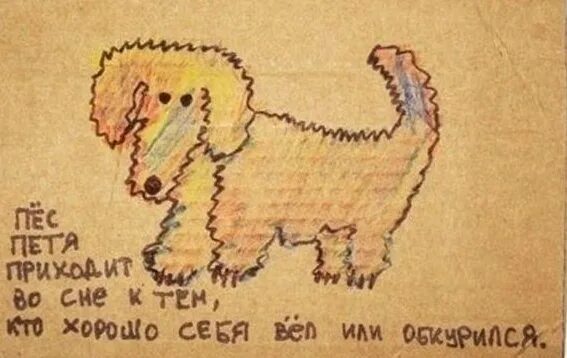 ПЁС
ПЕТЯ
ПРИХОДИТ
ВО СНЕ К ТЕМ,
КТО ХОРОШО СЕБЯ ВЁЛ ИЛИ ОБКУРИЛСЯ.